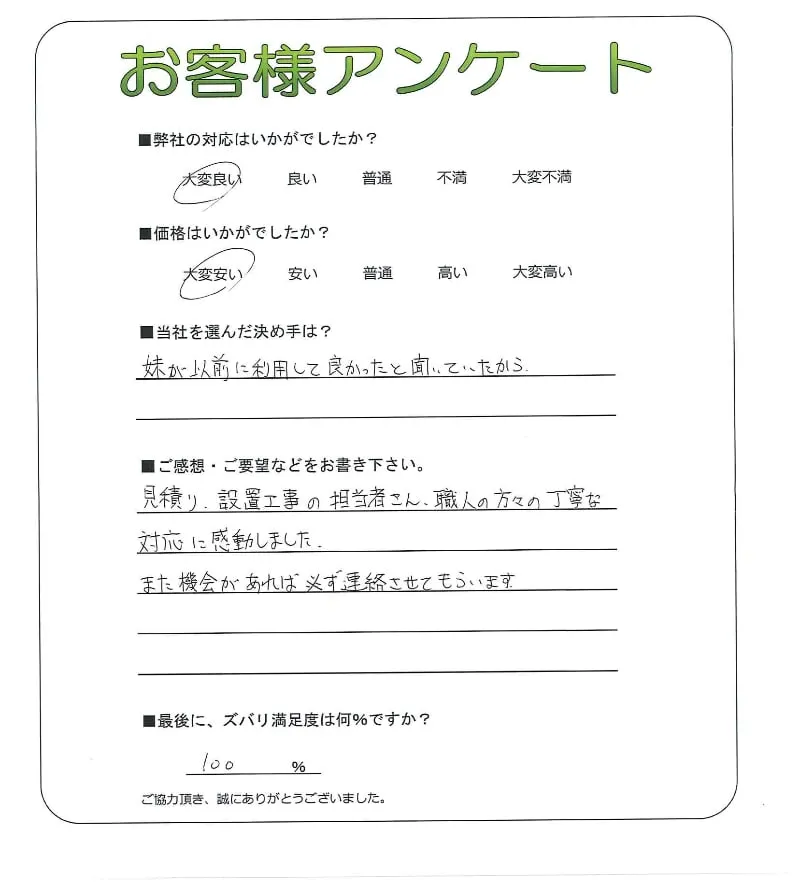 お客様アンケート
■弊社の対応はいかがでしたか？
大変良い 良い 普通 不満 大変不満
■価格はいかがでしたか？
大変安い 安い 普通 高い 大変高い
■当社を選んだ決め手は？
妹が以前に利用して良かったと聞いていたから.
■ご感想・ご要望などをお書き下さい。
見積り、設置工事の担当者さん、職人の方々の丁寧な
対応に感動しました.
また機会があれば必ず連絡させてもらいます
■最後に、ズバリ満足度は何％ですか？
100 %
ご協力頂き、誠にありがとうございました。